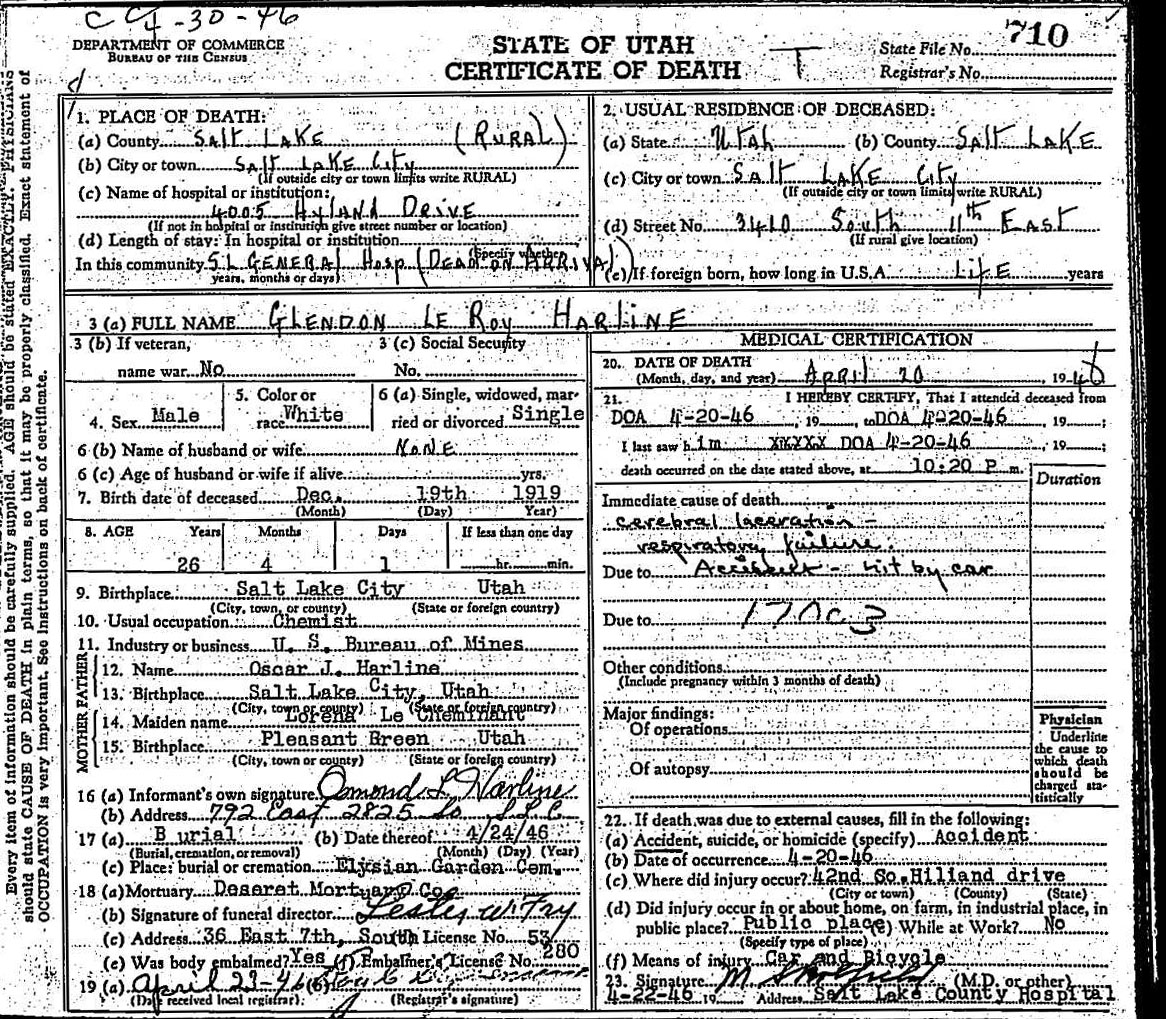 CC 4-30-46
DEPARTMENT OF COMMERCE
BUREAU OF THE CENSUS
STATE OF UTAH
CERTIFICATE OF DEATH
T
State File No. 710
Registrar's No.
Every item of information should be carefully supplied. AGE should be stated EXACTLY. PHYSICIANS
should state CAUSE OF DEATH in plain terms, so that it may be properly classified. Exact statement of
OCCUPATION is very important. See instructions on back of certificate.
1. PLACE OF DEATH:
(a) County SALT LAKE (RURAL)
(b) City or town SALT LAKE City
(If outside city or town limits write RURAL)
(c) Name of hospital or institution:
4005 HyLAND DRIVE
(If not in hospital or institution give street number or location)
(d) Length of stay: In hospital or institution
(Specify whether
In this community S L GENERAL Hosp (DEAD ON ARRIVAL)
years, months or days)
2. USUAL RESIDENCE OF DECEASED:
(a) State UTAH (b) County SALT LAKE
(c) City or town SALT LAKE City
(If outside city or town limits write RURAL)
(d) Street No. 3410 South 11th EAST
(If rural give location)
(e) If foreign born, how long in U.S.A. LiFE years
3 (a) FULL NAME GLENDON LE Roy HARLINE
3 (b) If veteran,
name war No
3 (c) Social Security
No.
4. Sex Male
5. Color or
race White
6 (a) Single, widowed, mar-
ried or divorced Single
6 (b) Name of husband or wife NONE
6 (c) Age of husband or wife if alive yrs.
7. Birth date of deceased Dec. 19th 1919
(Month) (Day) Year)
8. AGE Years Months Days If less than one day
26 4 1 hr. min.
9. Birthplace Salt Lake City Utah
(City, town, or county) (State or foreign country)
10. Usual occupation Chemist
11. Industry or business U. S. Bureau of Mines
FATHER
12. Name Oscar J. Harline
13. Birthplace Salt Lake City, Utah
(City, town or county) (State or foreign country)
MOTHER
14. Maiden name Lorena Le Cheminant
15. Birthplace Pleasant Green Utah
(City, town or county) (State or foreign country)
16 (a) Informant's own signature Osmond L Harline
(b) Address 792 East 2825 So S.L.C.
17 (a) Burial (b) Date thereof 4/24/46
(Burial, cremation, or removal) (Month) (Day) (Year)
(c) Place: burial or cremation Elysian Garden Cem.
18 (a) Mortuary Deseret Mortuary Co.
(b) Signature of funeral director Lester W. Fry
(c) Address 36 East 7th, South License No. 53
(e) Was body embalmed? Yes (f) Embalmer's License No. 280
19 (a) April 23-46 (b)
(Date received local registrar) (Registrar's signature)
MEDICAL CERTIFICATION
20. DATE OF DEATH
(Month, day, and year) APRIL 20, 1946
21. I HEREBY CERTIFY, That I attended deceased from
DOA 4-20-46, 19 to DOA 4-20-46, 19 ;
I last saw him XXXXX DOA 4-20-46 19 ;
death occurred on the date stated above, at 10:20 P m.
Duration
Immediate cause of death
cerebral laceration -
respiratory failure.
Due to Accident - hit by car
Due to 170c 3
Other conditions
(Include pregnancy within 3 months of death)
Major findings:
Of operations
Of autopsy
Physician
Underline
the cause to
which death
should be
charged sta-
tistically
22. If death was due to external causes, fill in the following:
(a) Accident, suicide, or homicide (specify) Accident
(b) Date of occurrence 4-20-46
(c) Where did injury occur? 42nd So. Hiliand drive
(City or town) (County) (State)
(d) Did injury occur in or about home, on farm, in industrial place, in
public place? Public place (e) While at Work? No
(Specify type of place)
(f) Means of injury Car and Bicycle
23. Signature M. (M.D. or other)
4-22-46 19 Address Salt Lake County Hospital